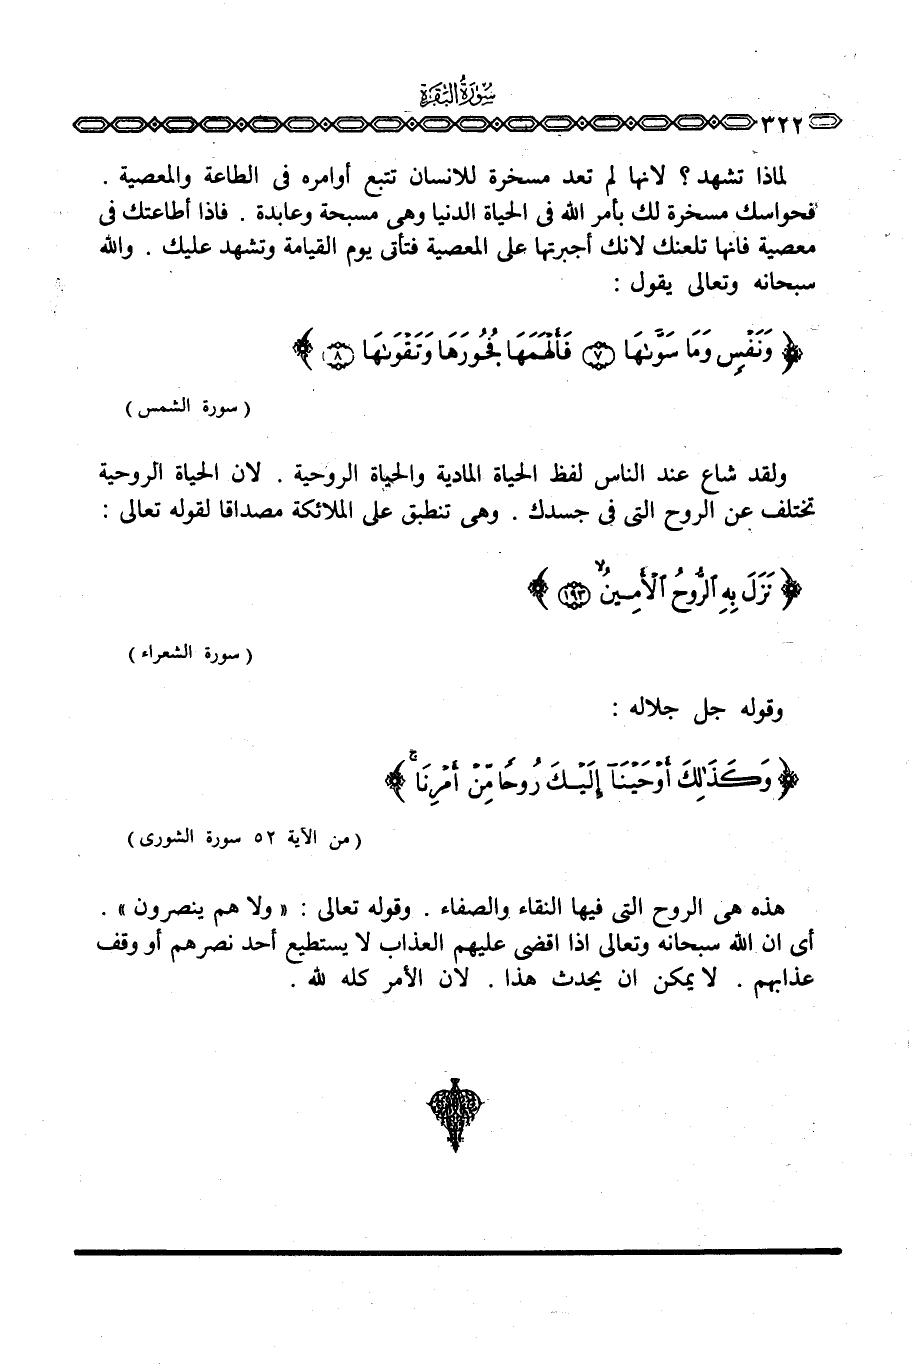 سُورَةُ البَقَرَةِ
٣٢٢
لماذا تشهد ؟ لانها لم تعد مسخرة للانسان تتبع أوامره فى الطاعة والمعصية .
فحواسك مسخرة لك بأمر الله فى الحياة الدنيا وهى مسبحة وعابدة . فاذا أطاعتك فى
معصية فانها تلعنك لانك أجبرتها على المعصية فتأتى يوم القيامة وتشهد عليك . والله
سبحانه وتعالى يقول :
﴿ وَنَفْسٍ وَمَا سَوَّىٰهَا ٧ فَأَلْهَمَهَا فُجُورَهَا وَتَقْوَىٰهَا ٨ ﴾
( سورة الشمس )
ولقد شاع عند الناس لفظ الحياة المادية والحياة الروحية . لان الحياة الروحية
تختلف عن الروح التى فى جسدك . وهى تنطبق على الملائكة مصداقا لقوله تعالى :
﴿ نَزَلَ بِهِ ٱلرُّوحُ ٱلْأَمِينُ ۙ ١٩٣ ﴾
( سورة الشعراء )
وقوله جل جلاله :
﴿ وَكَذَٰلِكَ أَوْحَيْنَآ إِلَيْكَ رُوحًا مِّنْ أَمْرِنَا ۚ ﴾
( من الآية ٥٢ سورة الشورى )
هذه هى الروح التى فيها النقاء والصفاء . وقوله تعالى : « ولا هم ينصرون » .
أى ان الله سبحانه وتعالى اذا اقضى عليهم العذاب لا يستطيع أحد نصرهم أو وقف
عذابهم . لا يمكن ان يحدث هذا . لان الأمر كله لله .